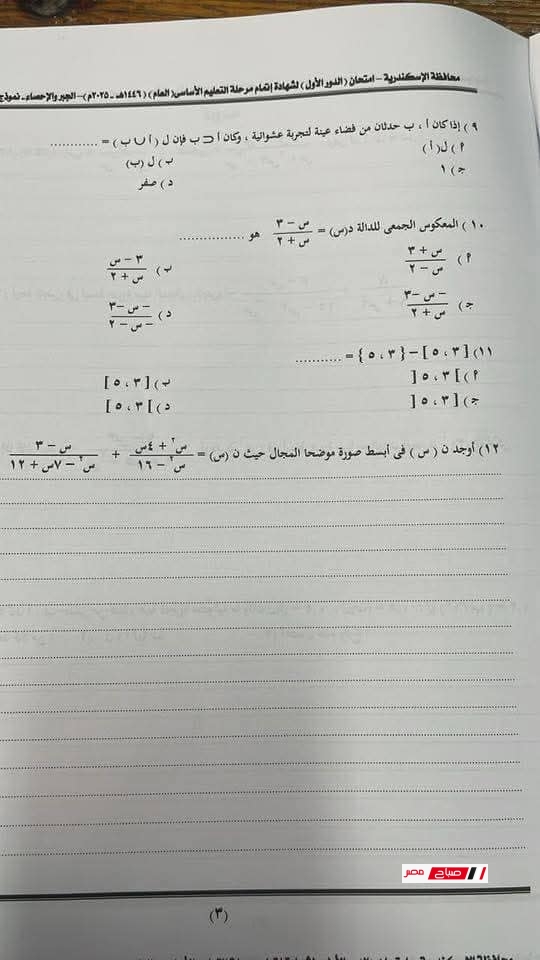 محافظة الإسكندرية - امتحان (الدور الأول) لشهادة إتمام مرحلة التعليم الأساسى (العام) (١٤٤٦هـ - ٢٠٢٥م) - الجبر والإحصاء - نموذج
٩) إذا كان أ ، ب حدثان من فضاء عينة لتجربة عشوائية ، وكان أ ⊂ ب فإن ل ( أ ∪ ب ) = ............
٢) ل( أ ) ب) ل (ب)
جـ) ١ د) صفر
١٠) المعكوس الجمعى للدالة د(س) = (س - ٣)/(س + ٢) هو ................
٢) (س + ٣)/(س - ٢) ب) (٣ - س)/(س + ٢)
جـ) (- س - ٣)/(س + ٢) د) (- س - ٣)/(- س - ٢)
١١) [٣ ، ٥] - {٣ ، ٥} = ...........
٢) ]٣ ، ٥] ب) [٣ ، ٥]
جـ) [٣ ، ٥[ د) ]٣ ، ٥[
١٢) أوجد ن ( س ) فى أبسط صورة موضحا المجال حيث ن (س) = (س٢ + ٤س)/(س٢ - ١٦) + (س - ٣)/(س٢ - ٧س + ١٢)
صباح مصر
(٣)